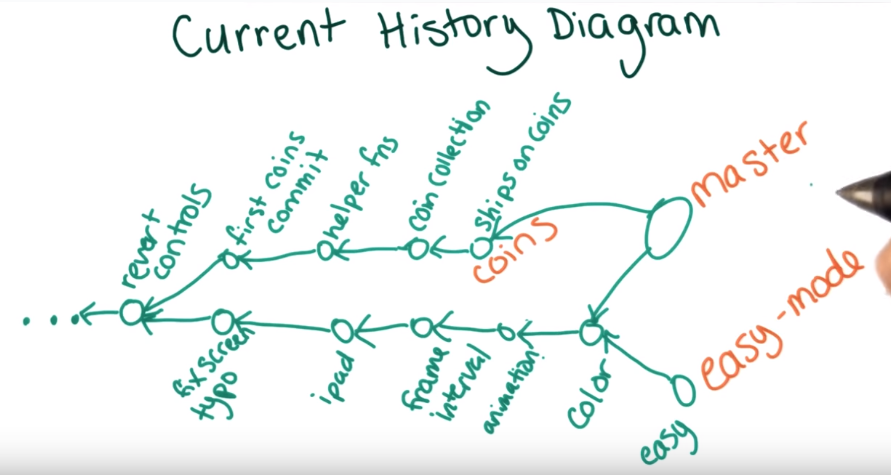 Current History Diagram
revert
controls
first coins
commit
helper fns
coin collection
ships on coins
coins
master
...
fix screen
typo
ipad
frame
interval
animation
Color
easy
easy-mode